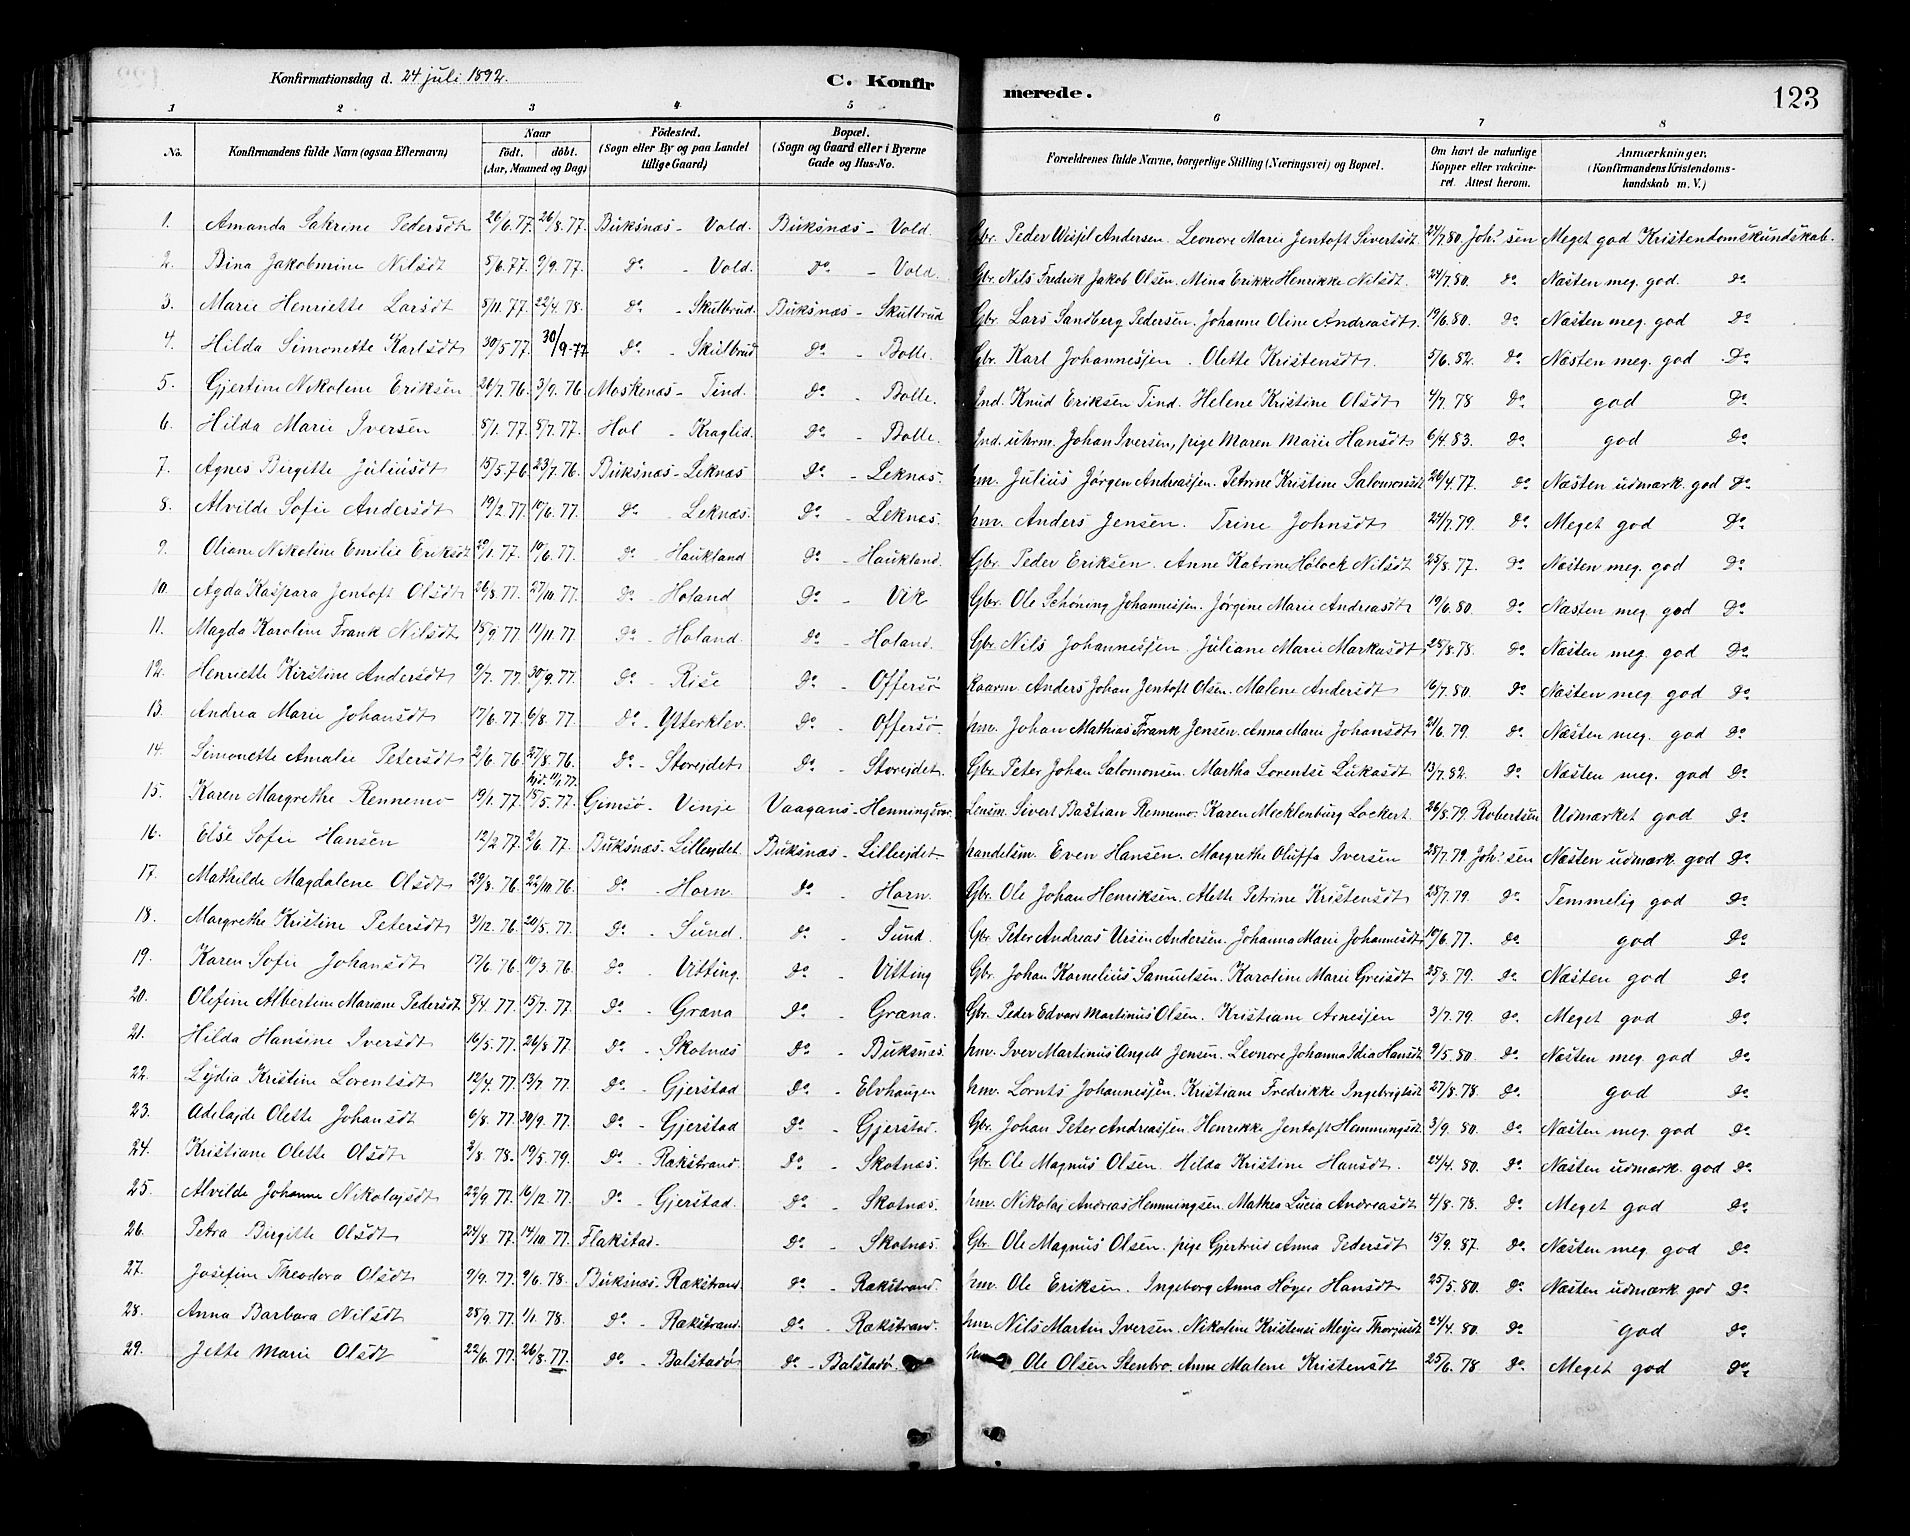 Konfirmationsdag d. 24 juli 1892.
C. Konfir
merede.
123
1 2 3 4 5 6 7 8
No.
Konfirmandens fulde Navn (ogsaa Efternavn)
Naar
født. døbt.
(Aar, Maaned og Dag)
Fødested.
(Sogn eller By og paa Landet
tillige Gaard)
Bopæl.
(Sogn og Gaard eller i Byerne
Gade og Hus-No.
Forældrenes fulde Navne, borgerlige Stilling (Næringsvei) og Bopæl.
Om havt de naturlige
Kopper eller vakcine-
ret. Attest herom.
Anmærkninger.
(Konfirmandens Kristendoms-
kundskab m. V.)
1. Amanda Sakrine Pedersdt 26/6.77. 26/8.77. Buksnæs - Vold. Buksnæs - Vold. Gbr. Peder Weisjel Andersen. Leonore Marie Jentoft Sivertsdt. 24/7.80. Joh.sen Meget god Kristendomskundskab.
2. Bina Jakobmine Nilsdt 5/6.77. 2/9.77. Do - Vold. Do - Vold. Gbr. Nils Fredrik Jakob Olsen. Mina Erikke Henrikke Nilsdt. 24/7.80. Do Næsten meg. god. Do
3. Marie Henriette Larsdt 5/11.77. 22/4.78. Do - Skulbrud. Buksnæs - Skulbrud Gbr. Lars Sandberg Pedersen. Johanne Oline Andreasdt. 19/6.80. Do Næsten meg. god Do
4. Hilda Simonette Karlsdt 30/5.77. 30/9-77 Do - Skulbrud Do - Bolle. Gbr. Karl Johannesjen. Olette Kristensdt. 5/6.82. Do Næsten meg. god Do
5. Gjertine Nikoline Eriksen 26/7.76. 3/9.76. Moskenæs - Tind. Do - Bolle. Ind. Knud Eriksen Tind. Helene Kristine Olsdt 4/7.78 Do god Do
6. Hilda Marie Iversen 5/1.77. 8/7.77. Hol - Kraglid. Do - Bolle. Ind. uhrm. Johan Iversen, pige Maren Marie Hansdt 6/4.83. Do god Do
7. Agnes Birgitte Juliusdt 15/5.76. 23/7.76. Buksnæs - Leknæs Do - Leknæs. hm. Julius Jørgen Andreasjen. Petrine Kristine Salomonsdt 26/4.77. Do Næsten udmærk. god Do
8. Alvilde Sofie Andersdt 19/2.77. 10/6.77. Do - Leknæs. Do - Leknæs. hm. Anders Jensen. Trine Johnsdt 24/7.79. Do Meget god Do
9. Oliane Nikoline Emilie Eriksdt 29/1.77. 10/6.77. Do - Haukland Do - Haukland. Gbr. Peder Eriksen. Anne Katrine Holock Nilsdt 25/8.77. Do Næsten meg. god Do
10. Agda Kaspara Jentoft Olsdt 26/8.77. 27/10.77. Do - Holand Do - Vik Gbr. Ole Schøning Johannesjen. Jørgine Marie Andreasdt 19/6.80. Do Næsten meg. god Do
11. Magda Karoline Frank Nilsdt 15/9.77. 11/11.77. Do - Holand. Do - Holand. Gbr. Nils Johannesjen. Juliane Marie Markusdt 25/8.78. Do Næsten meg. god Do
12. Henriette Kirstine Andersdt 9/7.77. 30/9.77. Do - Rise Do - Offersø Kaarm. Anders Johan Jentoft Olsen. Malene Andersdt 16/7.80. Do Næsten meg. god Do
13. Andrea Marie Johansdt 17/6.77. 6/8.77. Do - Ytterklev. Do - Offersø. hm. Johan Mathias Frank Jensen. Anna Marie Johansdt 21/6.79. Do Næsten meg. god Do
14. Simonette Amalie Petersdt 2/6.76. 27/8.76. Do - Storejdet Do - Storejdet. Gbr. Peter Johan Salomonsen. Martha Lorentse Lukasdt 13/7.82. Do Næsten meg. god Do
15. Karen Margrethe Rennemo 19/1.77. hjd. 11/1.77. 15/5.77. Gimsø - Vinje Vaagans - Henningsvær Lensm. Sivert Bastian Rennemo. Karen Mecklenburg Lockert. 26/8.79. Robertsen Udmærket god Do
16. Else Sofie Hansen 12/2.77. 2/6.77. Buksnæs - Lillejdet. Buksnæs - Lillejdet handelsm. Even Hansen. Margrethe Oluffa Iversen 28/7.79. Joh.sen Næsten udmærk. god Do
17. Mathilde Magdalene Olsdt 29/8.76. 22/10.76. Do - Horn. Do - Horn. Gbr. Ole Johan Henriksen. Alette Petrine Kristensdt 28/7.79. Do Temmelig god Do
18. Margrethe Kristine Petersdt 31/12.76. 20/5.77. Do - Sund. Do - Sund. Gbr. Peter Andreas Ursin Andersen. Johanna Marie Johannesdt 10/6.77. Do god Do
19. Karen Sofie Johansdt 17/6.76. 10/3.76. Do - Utting. Do - Utting Gbr. Johan Kornelius Samuelsen. Karoline Marie Greisdt 25/8.79. Do Næsten god Do
20. Olefine Albertine Mariane Pedersdt 8/4.77. 15/7.77. Do - Græna Do - Græna. Gbr. Peder Edvard Martinus Olsen. Kristiane Arnesjen 3/7.79. Do Meget god Do
21. Hilda Hansine Iversdt 16/5.77. 26/8 77. Do - Skotnæs Do - Buksnæs. hm. Iver Martinus Angell Jensen. Leonore Johanna Idia Hansdt 9/5.80. Do Næsten meg. god Do
22. Lydia Kristine Lorentsdt 12/4.77. 13/7.77. Do - Gjerstad Do - Elvhaugen hm. Lornts Johannesjen. Kristiane Fredrikke Ingebrigtsdt 27/8.78. Do god Do
23. Adelajde Olette Johansdt 6/8.77. 30/9.77. Do - Gjerstad Do - Gjerstad. Gbr. Johan Peter Andreasjen. Henrikke Jentoft Hemmingsdt 3/9.80. Do Næsten meg. god Do
24. Kristiane Olette Olsdt 2/8.78. 19/5.79. Do - Rækstrand. Do - Skotnæs. Gbr. Ole Magnus Olsen. Hilda Kristine Hansdt. 24/4.80. Do Næsten udmærk. god Do
25. Alvilde Johanne Nikolajsdt 22/9.77. 16/12.77. Do - Gjerstad. Do - Skotnæs. hm. Nikolaj Andreas Hemmingsen. Mathea Lucia Andreasdt 4/8.78. Do Meget god Do
26. Petra Birgitte Olsdt 24/8.77. 14/10 77. Flakstad. Do - Skotnæs. Gbr. Ole Magnus Olsen. pige Gjertrud Anna Pedersdt 15/9.87. Do Næsten meg. god Do
27. Josefine Theodora Olsdt 9/9.77. 9/6.78. Buksnæs - Rækstrand Do - Rækstrand. hm. Ole Eriksen. Ingeborg Anna Høyer Hansdt 25/5.80. Do Næsten udmærk. god Do
28. Anna Barbara Nilsdt 28/9.77. 1/1.78. Do - Rækstrand. Do - Rækstrand. hm. Nils Martin Iversen. Nikoline Kristense Meyer 24/4.80. Do god Do
29. Jette Marie Olsdt 22/6.77. 26/8.77. Do - Balstadø Do - Balstadø hm. Ole Olsen Stenbro. Anne Malene Kristensdt 25/6.78 Do Meget god Do